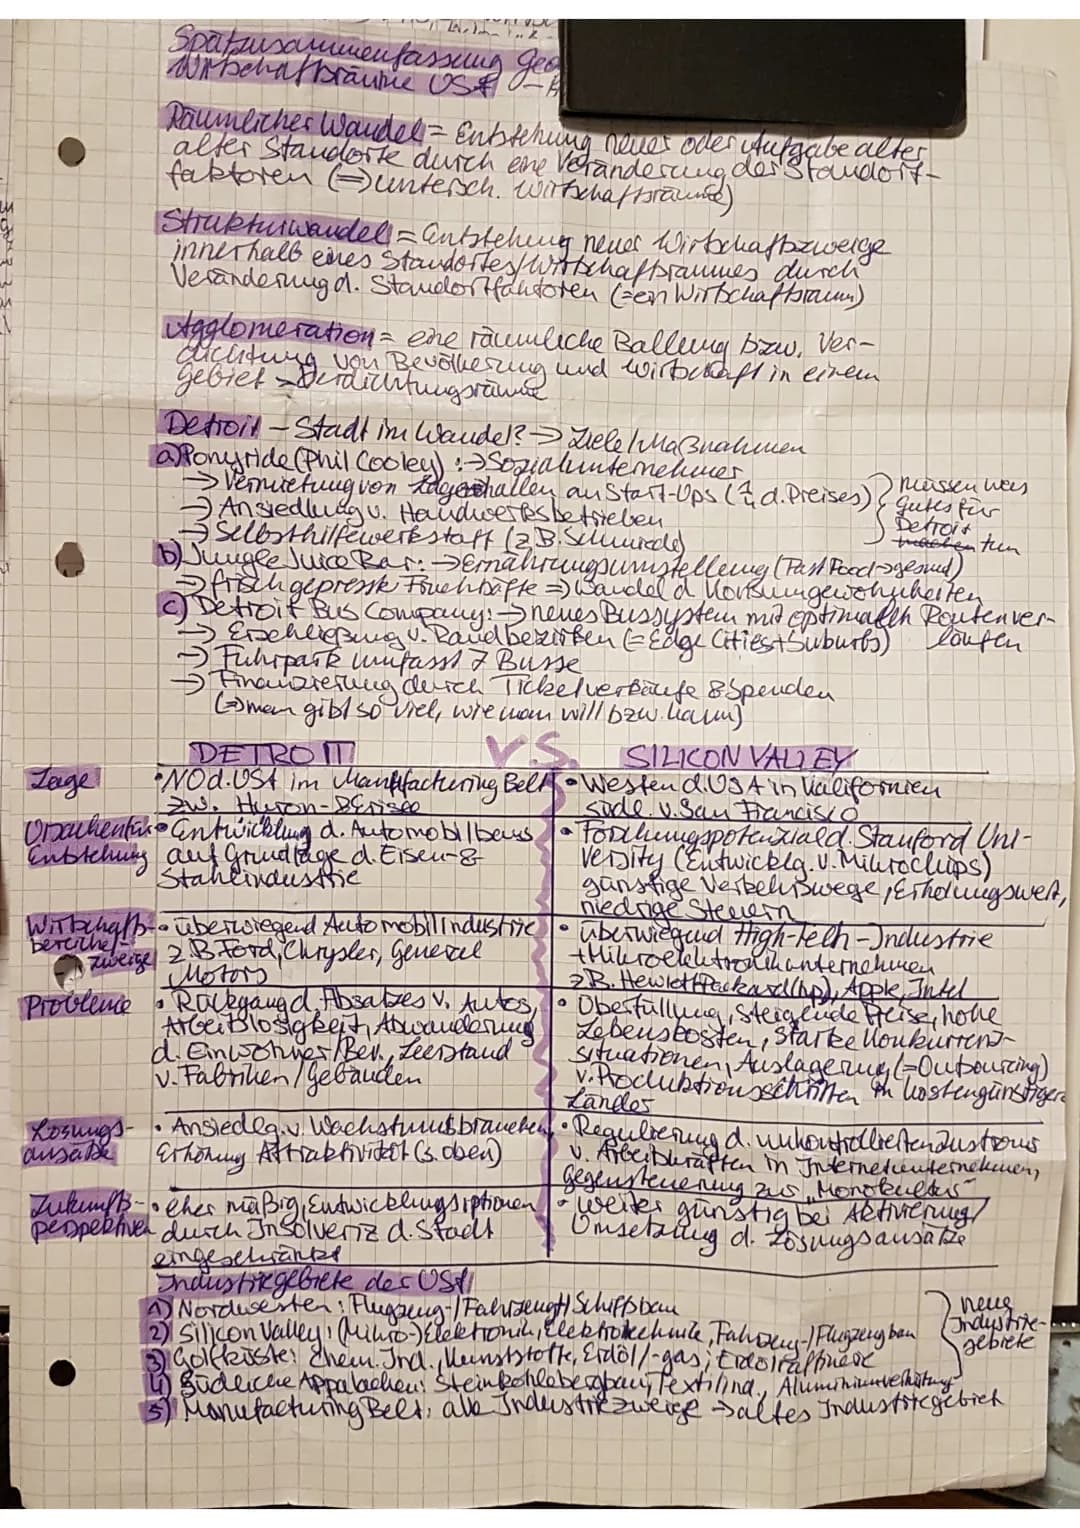 Spatzusammenfassung Geo
Wirtschaftsräume USA
Räumlicher Wandel = Entstehung neuer oder Aufgabe alter
alter Standorte durch eine Veränderung der Standort-
faktoren (=> untersch. Wirtschaftsräume)
Strukturwandel = Entstehung neuer Wirtschaftszweige
innerhalb eines Standortes/Wirtschaftsraumes durch
Veränderung d. Standortfaktoren (=ein Wirtschaftsraum)
Agglomeration = eine räumliche Ballung bzw. Ver-
dichtung von Bevölkerung und Wirtschaft in einem
Gebiet → Verdichtungsräume
Detroit - Stadt im Wandel? → Ziele/Maßnahmen
a) Ponyride (Phil Cooley): → Sozialunternehmer
→ Vermietung von Lagerhallen an Start-Ups (1/4 d. Preises)
→ Ansiedlung v. Handwerksbetrieben
→ Selbsthilfewerkstatt (z.B. Schmiede)
müssen was
Gutes für
Detroit
tun
b) Jungle Juice Bar: → Ernährungsumstellung (Fast Food → gesund)
→ frisch gepresste Fruchtsäfte => Wandel d. Konsumgewohnheiten
c) Detroit Bus Company: → neues Bussystem mit optimalen Routenver-
läufen
→ Erschließung v. Randbezirken (= Edge Cities + Suburbs)
→ Fuhrpark umfasst 7 Busse
→ Finanzierung durch Ticketverkäufe & Spenden
(=> man gibt so viel, wie man will bzw. kann)
DETROIT VS. SILICON VALLEY
Lage
• NO d. USA im Manufacturing Belt
zw. Huron- & Eriesee
• Westen d. USA in Kalifornien
südl. v. San Francisco
Ursachen für
Entstehung
• Entwicklung d. Automobilbaus
auf Grundlage d. Eisen- &
Stahlindustrie
• Forschungspotenzial d. Stanford Uni-
versity (Entwicklg. v. Mikrochips)
günstige Verkehrswege, Erholungswert,
niedrige Steuern
Wirtschafts-
bereiche/-
zweige
• überwiegend Automobilindustrie
z.B. Ford, Chrysler, General
Motors
• überwiegend High-Tech-Industrie
+ Mikroelektronikunternehmen
z.B. Hewlett Packard (hp), Apple, Intel
Probleme
• Rückgang d. Absatzes v. Autos,
Arbeitslosigkeit, Abwanderung
d. Einwohner/Bev., Leerstand
v. Fabriken/Gebäuden
• Überfüllung, steigende Preise, hohe
Lebenskosten, starke Konkurrenz-
situationen, Auslagerung (=Outsourcing)
v. Produktionsschritten in kostengünstigere
Länder
Lösungs-
ansätze
• Ansiedlg. v. Wachstumsbranchen,
Erhöhung Attraktivität (s. oben)
• Regulierung d. unkontrollierten Zustroms
v. Arbeitskräften in Internetunternehmen,
Gegensteuerung zur „Monokultur"
Zukunfts-
perspektiven
• eher mäßig, Entwicklungsoptionen
durch Insolvenz d. Stadt
eingeschränkt
• weiter günstig bei Aktivierung/
Umsetzung d. Lösungsansätze
Industriegebiete der USA
1) Nordwesten: Flugzeug-/Fahrzeug-/Schiffsbau
2) Silicon Valley: (Mikro-)Elektronik, Elektrotechnik, Fahrzeug-/Flugzeugbau
3) Golfküste: Chem. Ind., Kunststoffe, Erdöl/-gas; Erdölraffinerie
4) Südliche Appalachen: Steinkohlebergbau, Textilind., Aluminiumverhüttung
5) Manufacturing Belt: alle Industriezweige → altes Industriegebiet
neue
Industrie-
gebiete